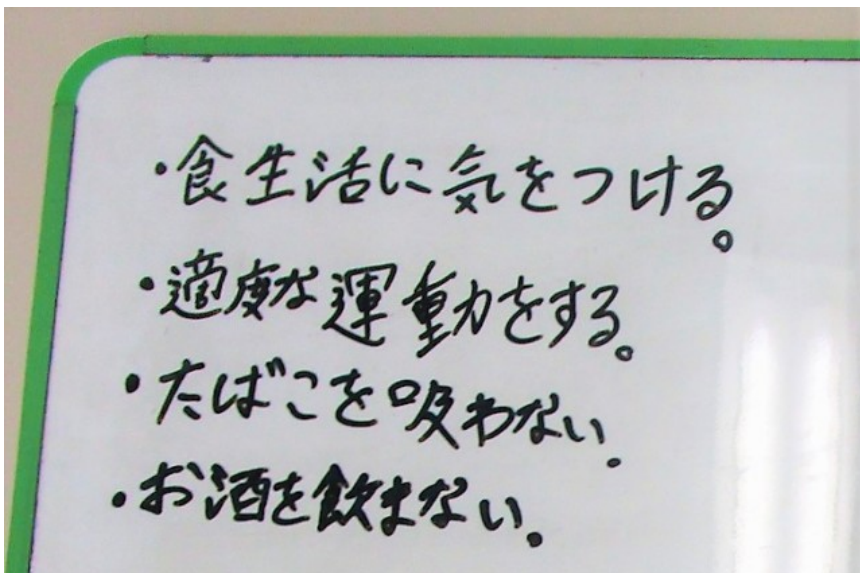 ・食生活に気をつける。
・適度な運動をする。
・たばこを吸わない.
・お酒を飲まない.